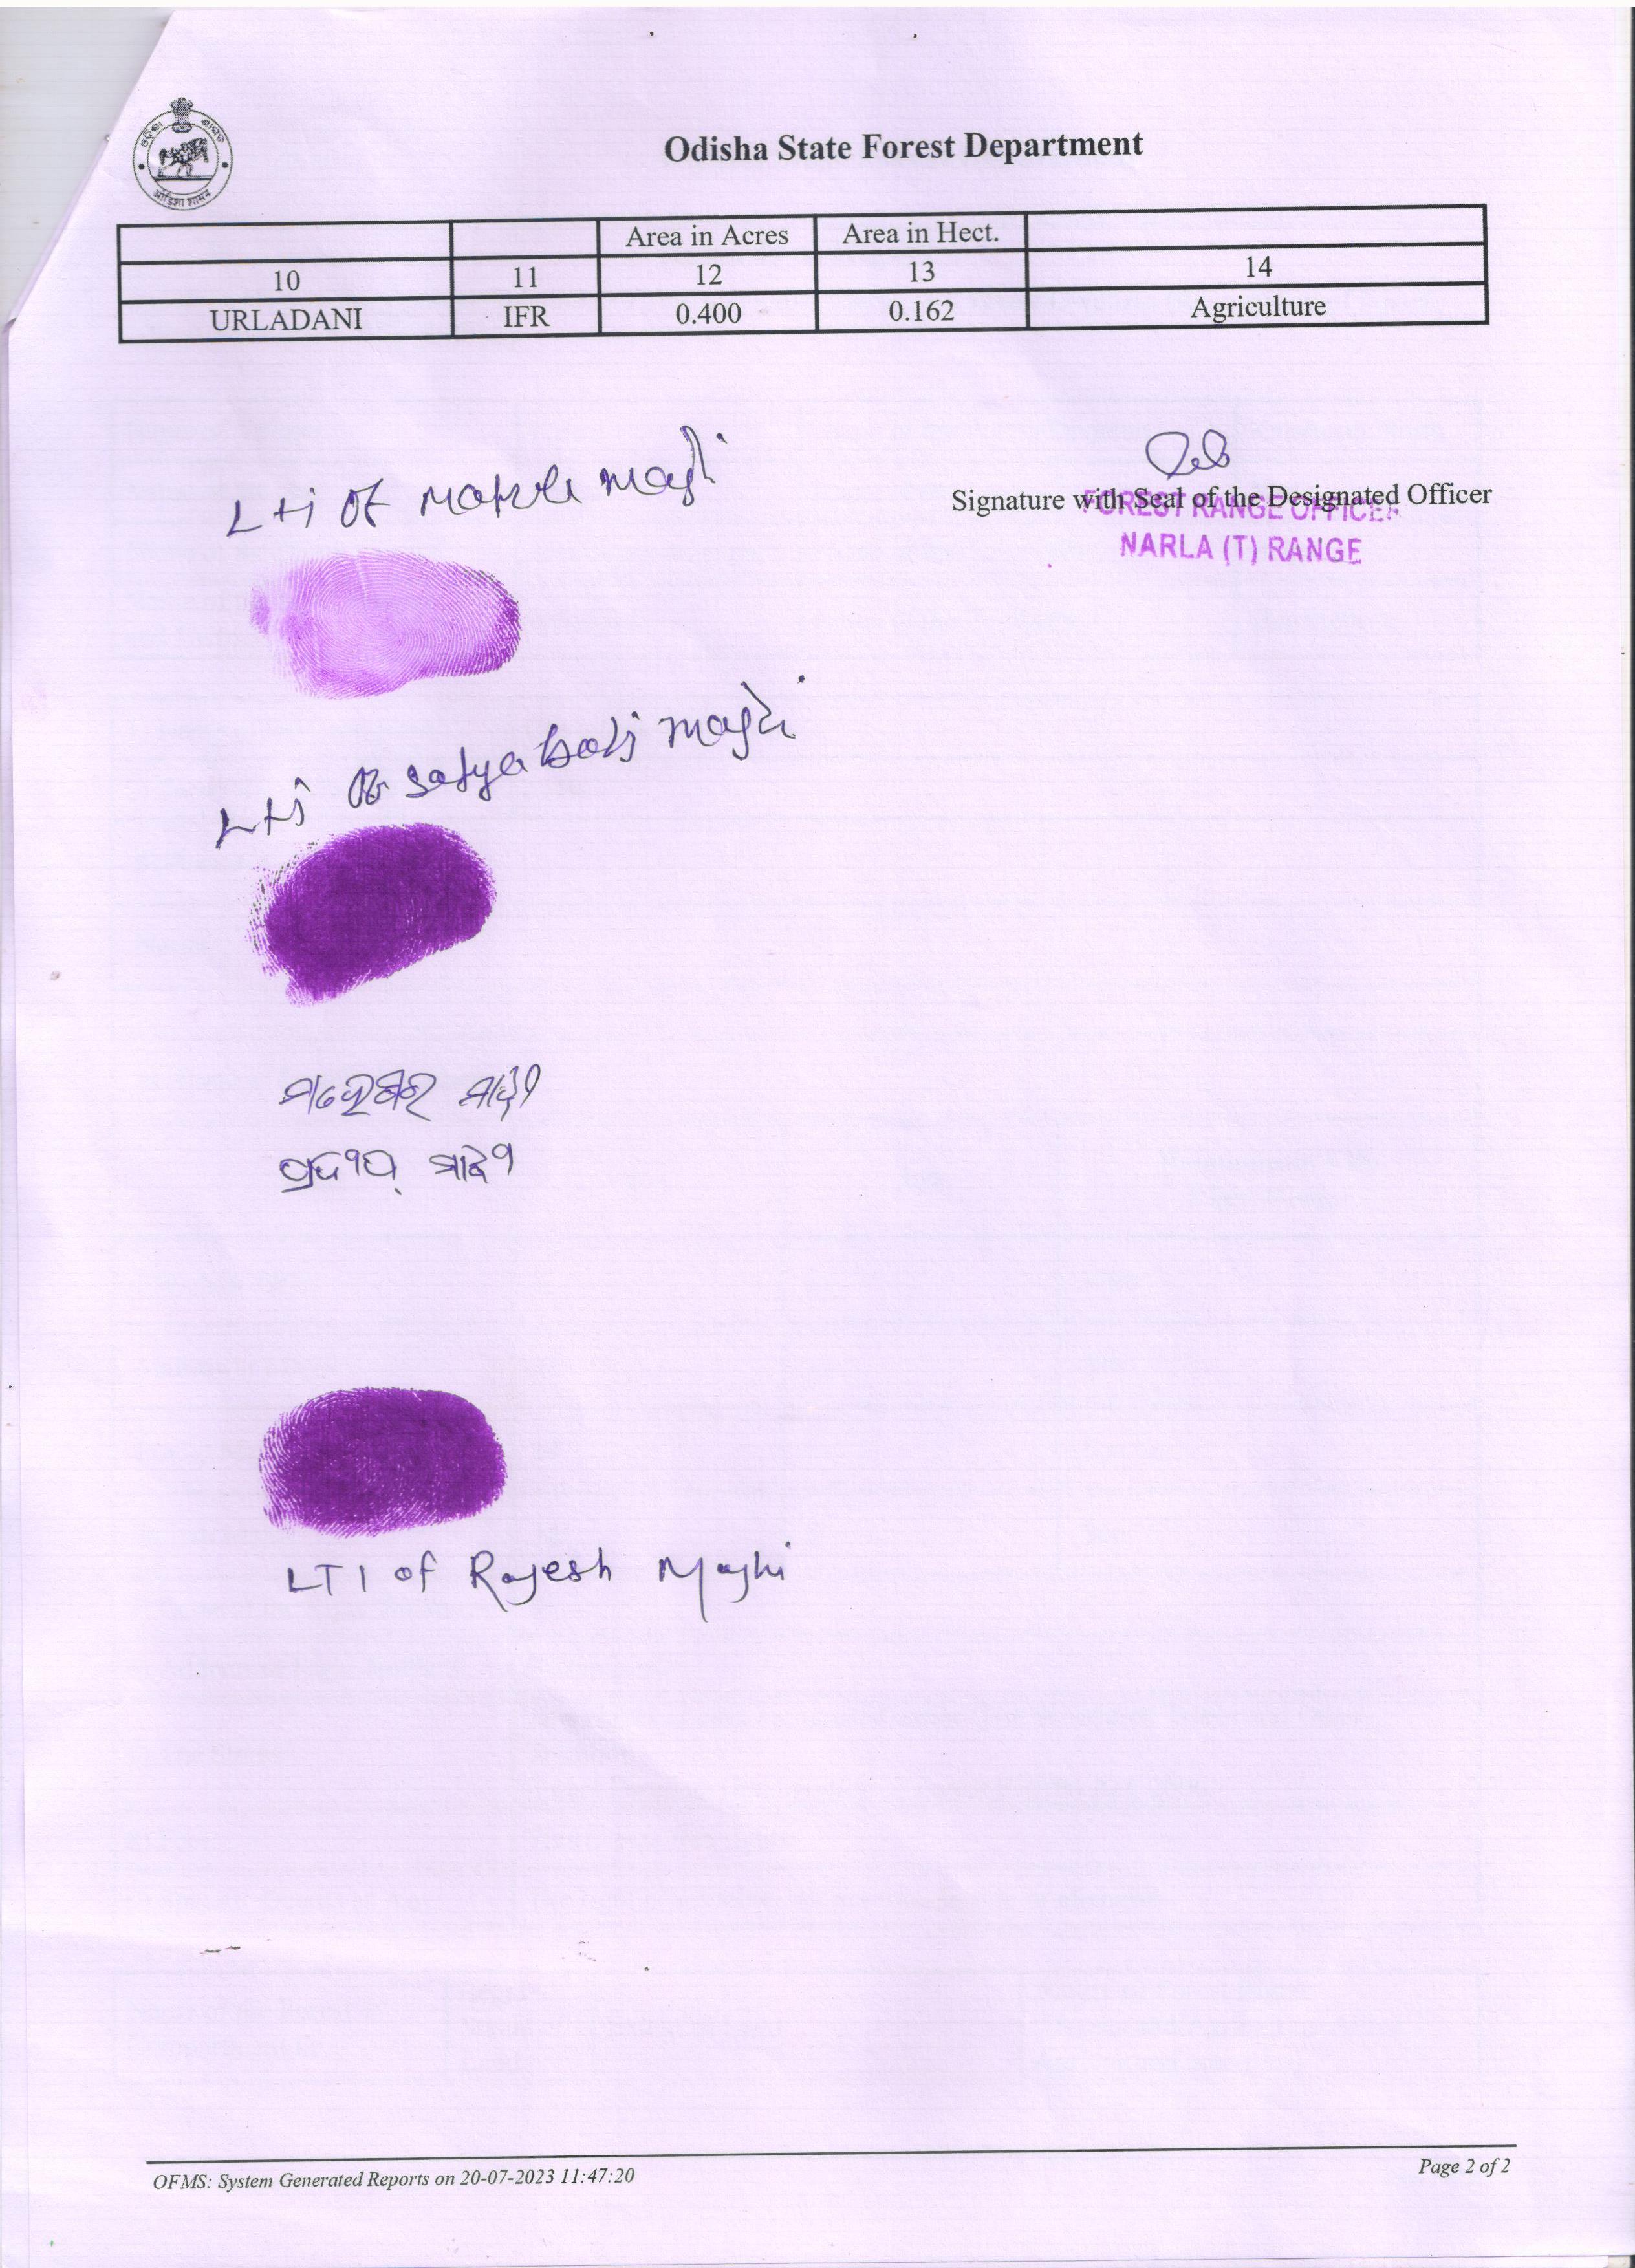 ଓଡ଼ିଶା ଶାସନ
ओड़िशा शासन
Odisha State Forest Department
Area in Acres Area in Hect.
10 11 12 13 14
URLADANI IFR 0.400 0.162 Agriculture
Signature with Seal of the Designated Officer
FOREST RANGE OFFICER
NARLA (T) RANGE
Lti of majhi
Lti of satyabati majhi
ମାହେଶ୍ଵର ମାଝି
ପ୍ରଦୀପ୍ ମାଝୀ
LTI of Rajesh Majhi
OFMS: System Generated Reports on 20-07-2023 11:47:20
Page 2 of 2